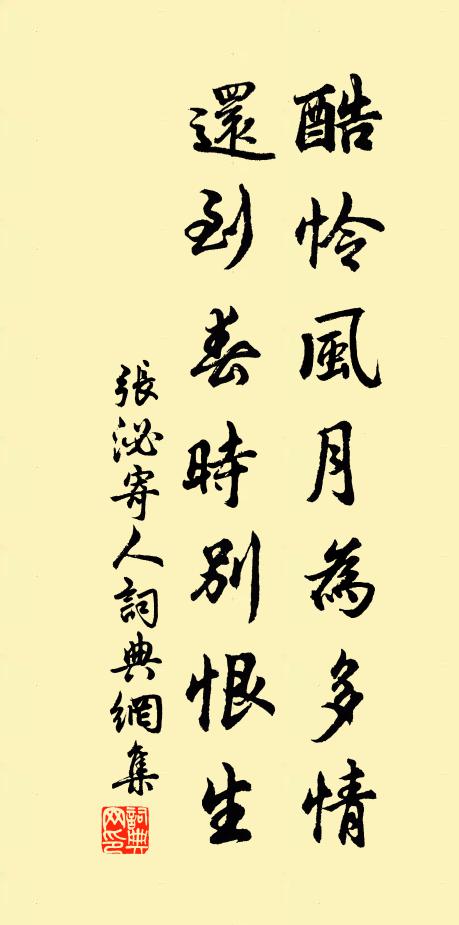 酷怜風月為多情
還到春時別恨生
張泌寄人詞典網集
詞典網印